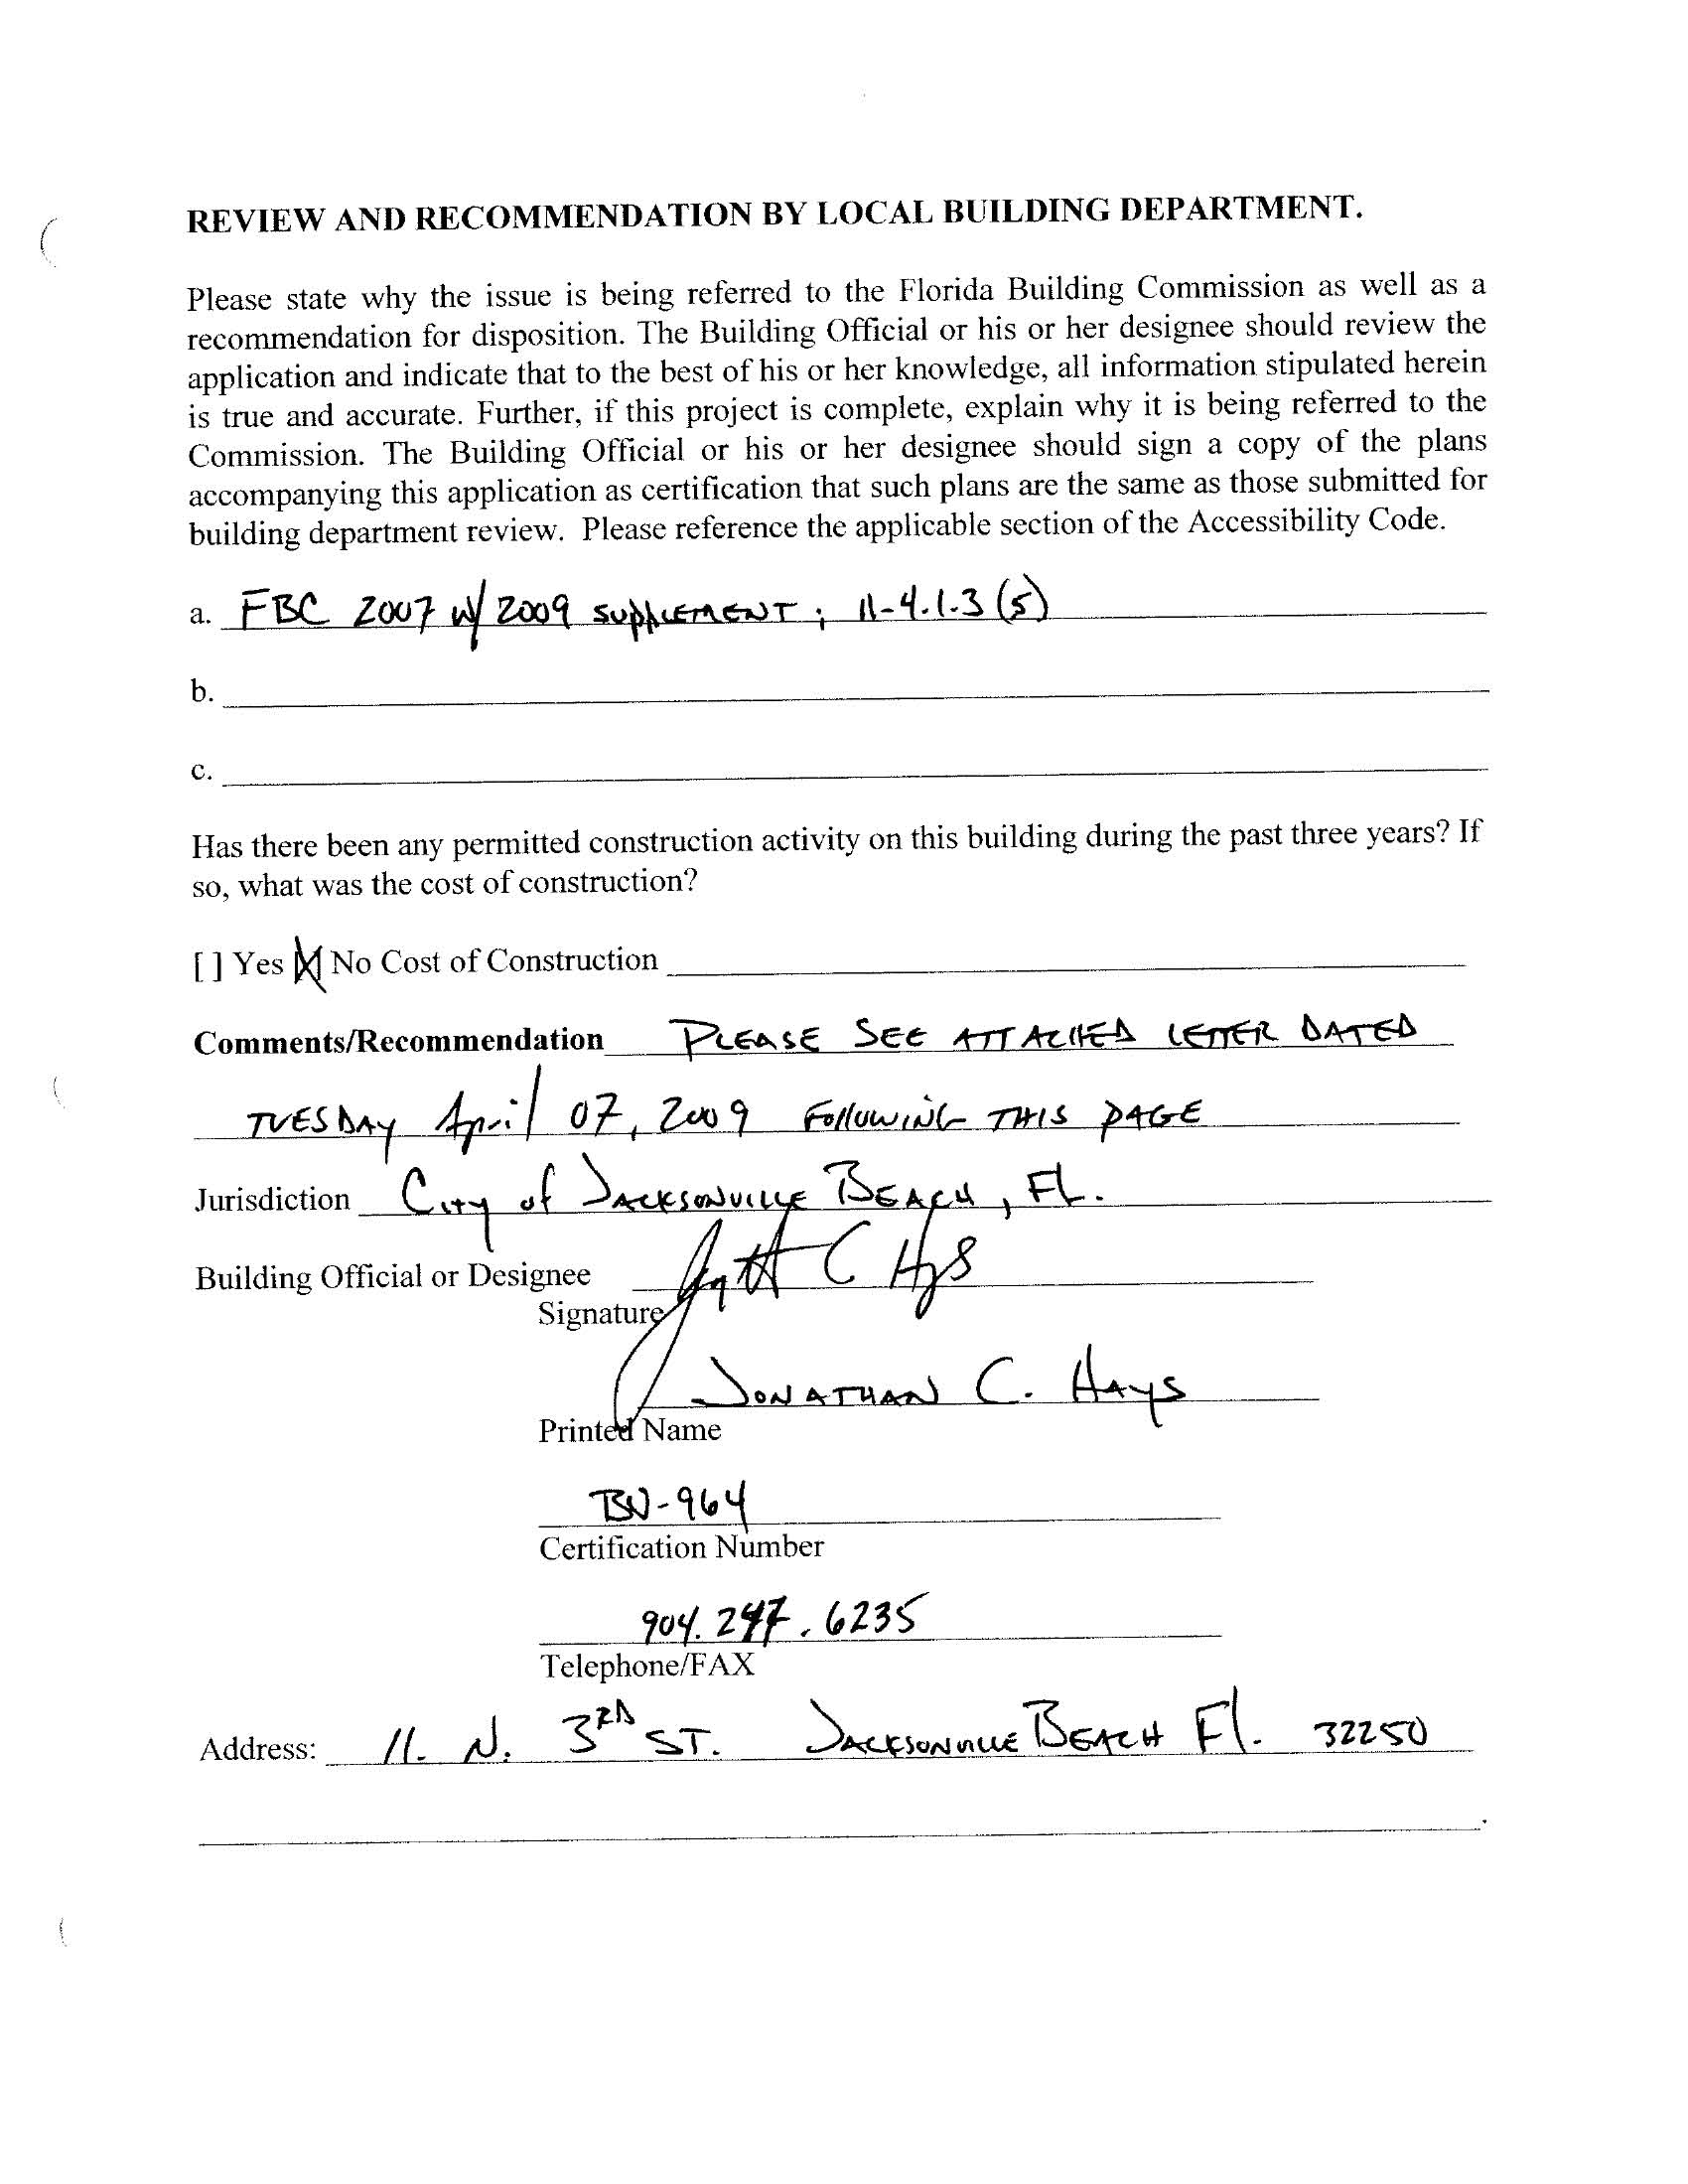 REVIEW AND RECOMMENDATION BY LOCAL BUILDING DEPARTMENT.
Please state why the issue is being referred to the Florida Building Commission as well as a
recommendation for disposition. The Building Official or his or her designee should review the
application and indicate that to the best of his or her knowledge, all information stipulated herein
is true and accurate. Further, if this project is complete, explain why it is being referred to the
Commission. The Building Official or his or her designee should sign a copy of the plans
accompanying this application as certification that such plans are the same as those submitted for
building department review. Please reference the applicable section of the Accessibility Code.
a. FBC 2007 w/ 2009 SUPPLEMENT; 11-4.1.3 (5)
b.
c.
Has there been any permitted construction activity on this building during the past three years? If
so, what was the cost of construction?
[ ] Yes [X] No Cost of Construction
Comments/Recommendation PLEASE SEE ATTACHED LETTER DATED
TUESDAY April 07, 2009 FOllOWING THIS PAGE
Jurisdiction City of JACKSONVILLE BEACH, FL.
Building Official or Designee
Signature
JONATHAN C. HAYS
Printed Name
BU-964
Certification Number
904.247.6235
Telephone/FAX
Address: 11. N. 3RD ST. JACKSONVILLE BEACH Fl. 32250